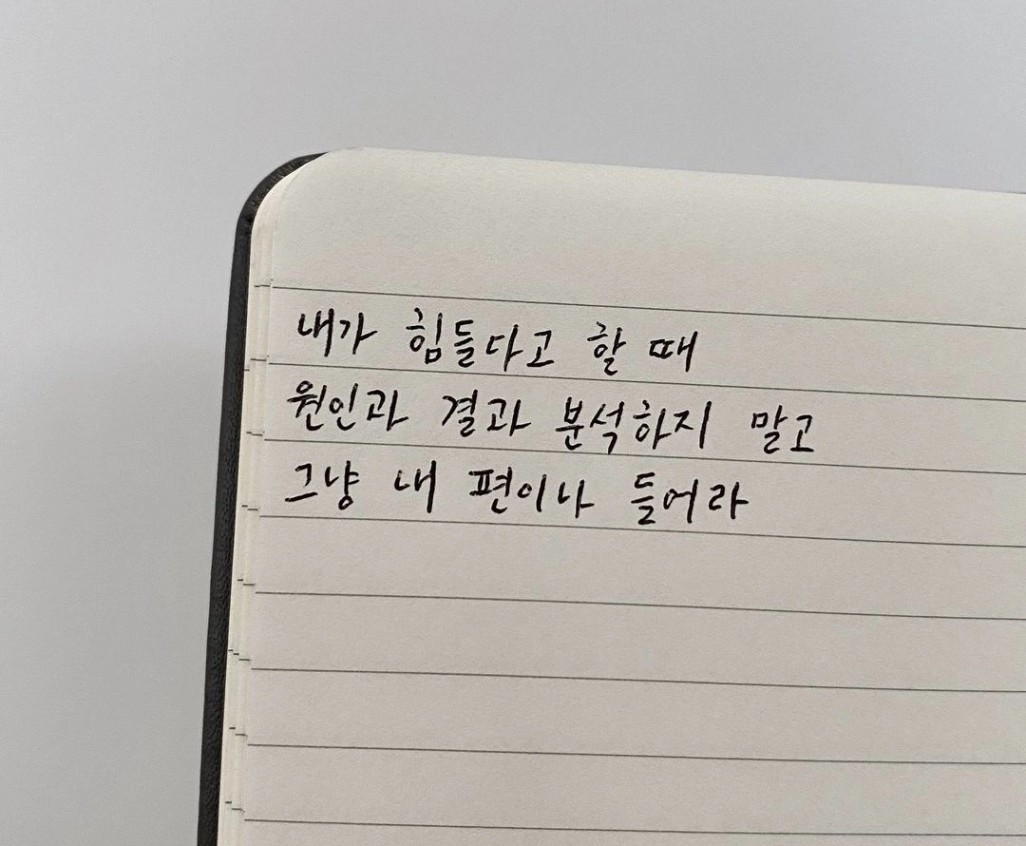 내가 힘들다고 할 때
원인과 결과 분석하지 말고
그냥 내 편이나 들어라